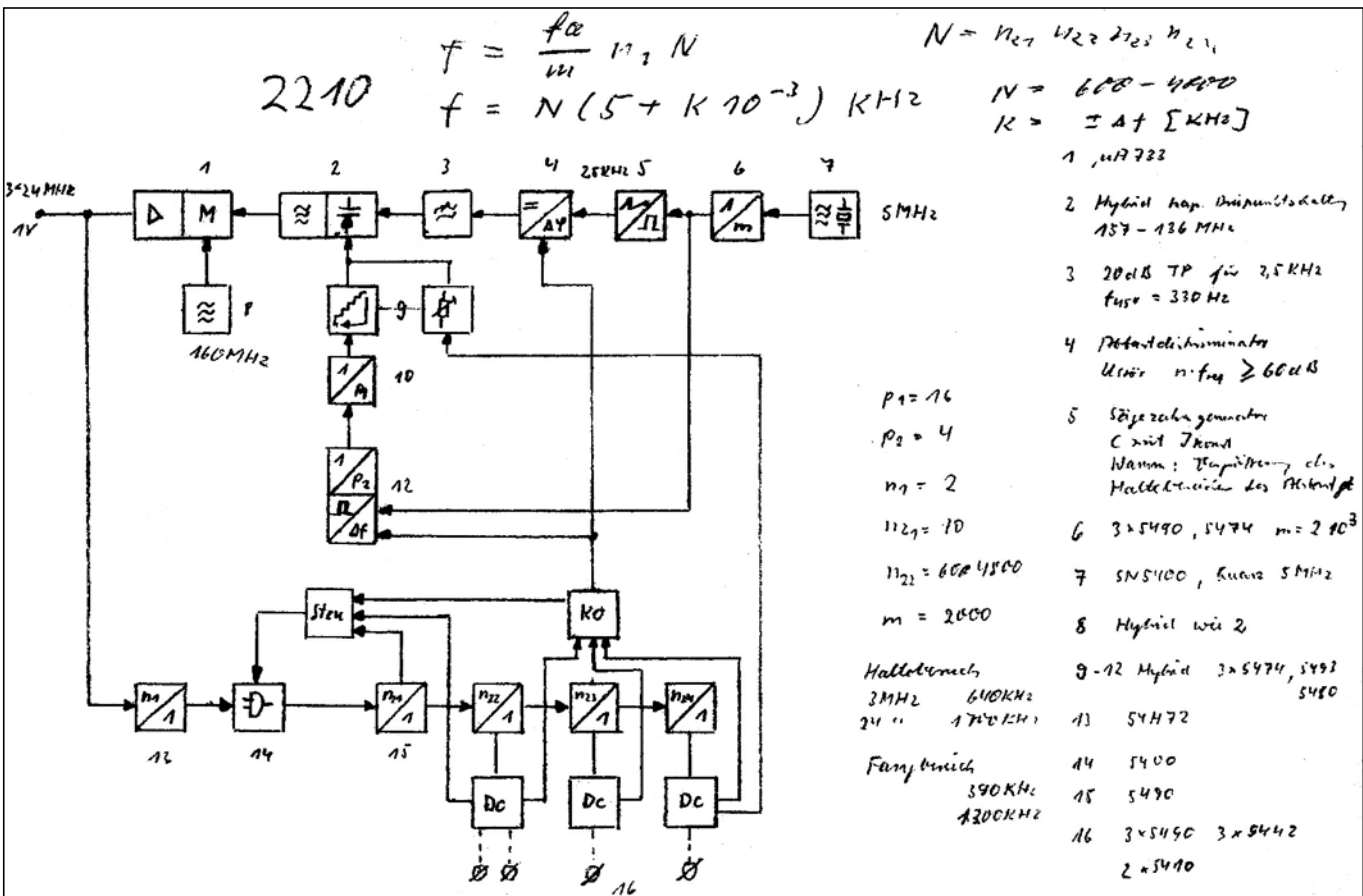 2210
f = fa/m n₁ N
f = N (5 + K 10⁻³) KHz
N = n₂₁ n₂₂ n₂₃ n₂₄
N = 600 - 4800
K = ± Δf [KHz]
3-24 MHz
1V
1
2
3
4
25KHz
5
6
7
5MHz
M
=
Δφ
1
m
8
160MHz
9
1
p₁
10
1
p₂
12
Δf
Steu
KO
n₁
1
13
14
n₂₁
1
15
n₂₂
1
n₂₃
1
n₂₄
1
Dc
Dc
Dc
16
p₁ = 16
p₂ = 4
n₁ = 2
n₂₁ = 10
n₂₂ = 600 4800
m = 2000
Haltebereich
3MHz 640KHz
24 " 1700KHz
Fangbereich
390KHz
1300KHz
1 µA733
2 Hybrid kap. Dreipunktschaltg
157 - 136 MHz
3 20dB TP für 2,5KHz
= 330 Hz
4 Abtastdiskriminator
≥ 60dB
5 Sägezahngenerator
C mit Ikonst
Warum: des
Haltebereichs des
6 3×5490, 5474 m = 2 10³
7 SN5400, Quarz 5MHz
8 Hybrid wie 2
9-12 Hybrid 3×5474, 5493
5480
13 54H72
14 5400
15 5490
16 3×5490 3×5442
2×5410